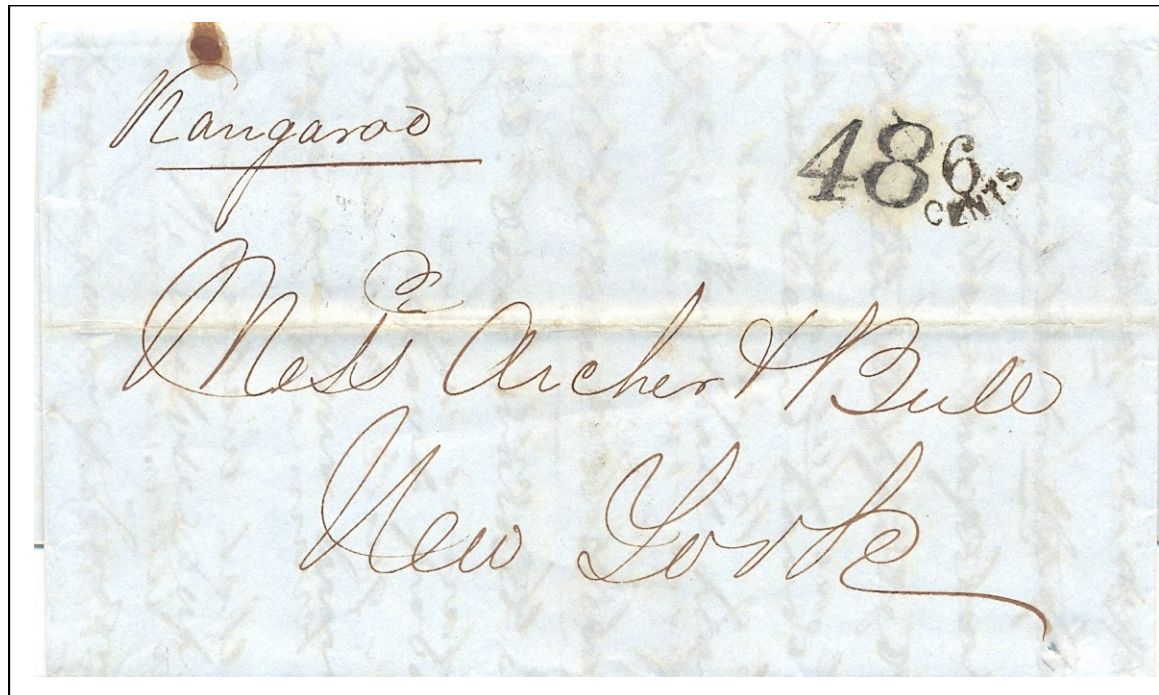 Kangaroo
48 6
CENTS
Mess^rs Archer & Bull
New York